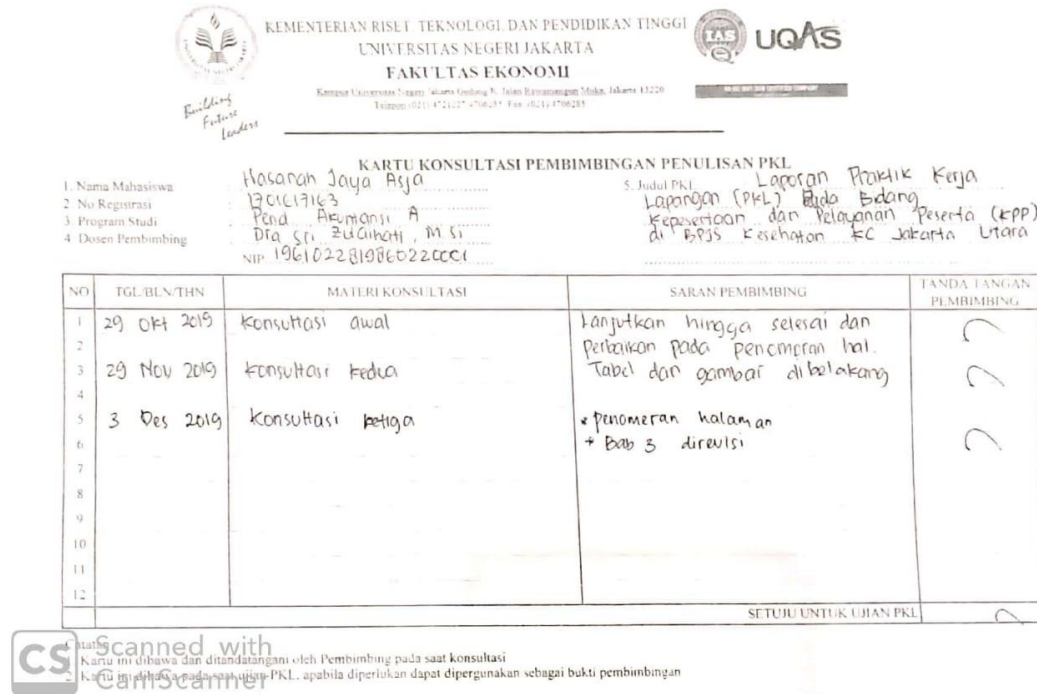 KEMENTERIAN RISET, TEKNOLOGI, DAN PENDIDIKAN TINGGI
UNIVERSITAS NEGERI JAKARTA
FAKULTAS EKONOMI
Kampus Universitas Negeri Jakarta Gedung R, Jalan Rawamangun Muka, Jakarta 13220
Building
Future
Leaders
IAS
UQAS
KARTU KONSULTASI PEMBIMBINGAN PENULISAN PKL
1. Nama Mahasiswa : Hasanah Jaya Asja
2 No Registrasi : 1701617163
3. Program Studi : Pend. Akuntansi A
4 Dosen Pembimbing : Dra Sri Zulaihati, M.Si
NIP.
5. Judul PKL : Laporan Praktik Kerja
Lapangan (PKL) Pada Bidang
Kepesertaan dan Pelayanan Peserta (KPP)
di BPJS Kesehatan KC Jakarta Utara
NO TGL/BLN/THN MATERI KONSULTASI SARAN PEMBIMBING TANDA TANGAN PEMBIMBING
1 29 Okt 2019 Konsultasi awal Lanjutkan hingga selesai dan
2 Perbaikan pada penomoran hal.
3 29 Nov 2019 Konsultasi kedua Tabel dan gambar dibelakang
4
5 3 Des 2019 Konsultasi ketiga * penomeran halaman
6 + Bab 3 direvisi
7
8
9
10
11
12
SETUJU UNTUK UJIAN PKL
Catatan
1. Kartu ini dibawa dan ditandatangani oleh Pembimbing pada saat konsultasi
2. Kartu ini dibawa pada saat ujian PKL, apabila diperlukan dapat dipergunakan sebagai bukti pembimbingan
CS Scanned with
CamScanner